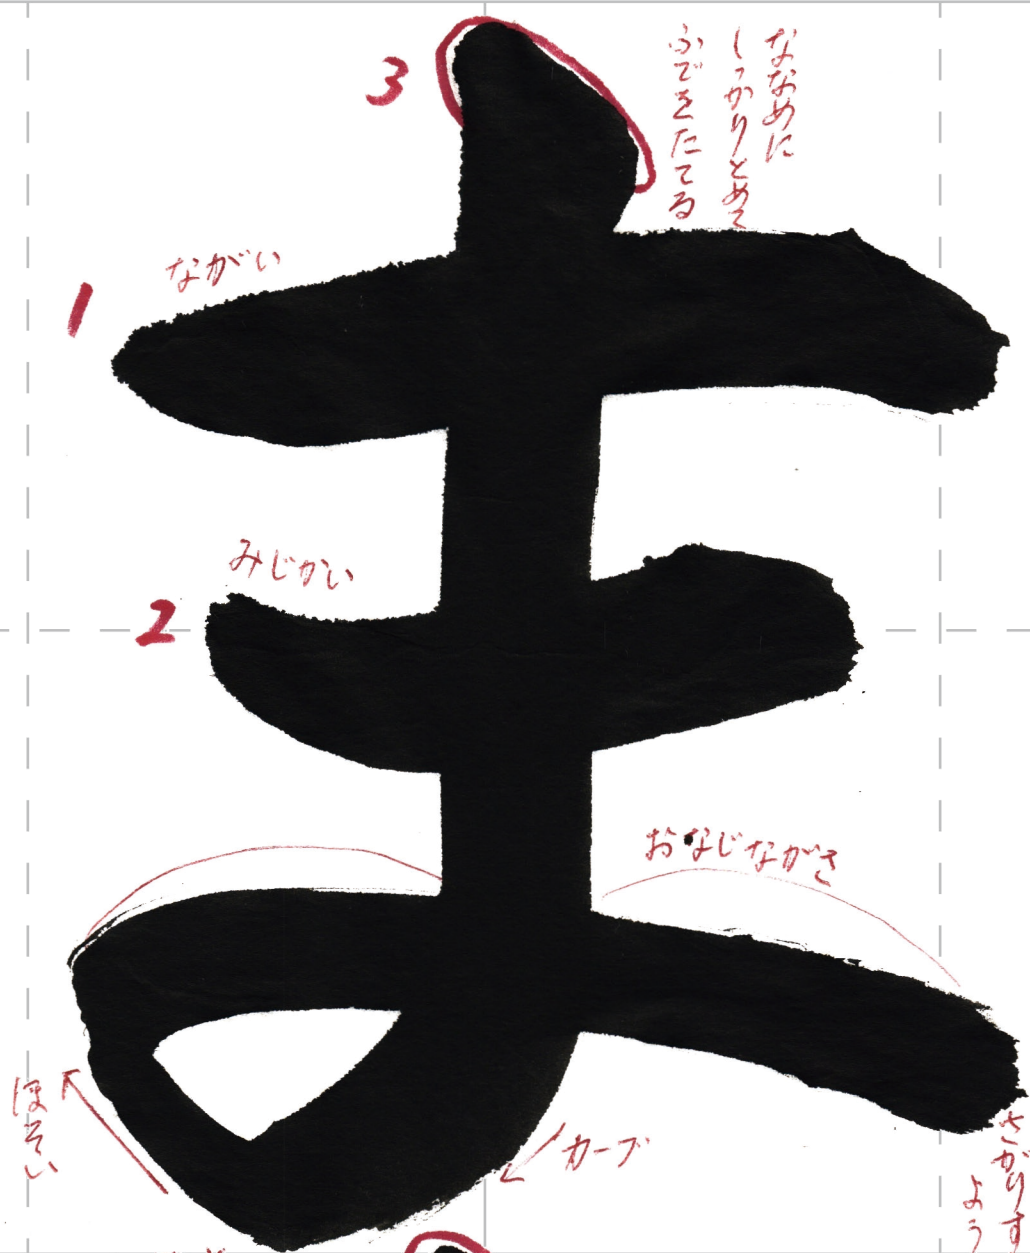 ま
3
ななめに
しっかりとめて
ふでをたてる
1
ながい
2
みじかい
おなじながさ
ほそい
カーブ
さがりす
よう